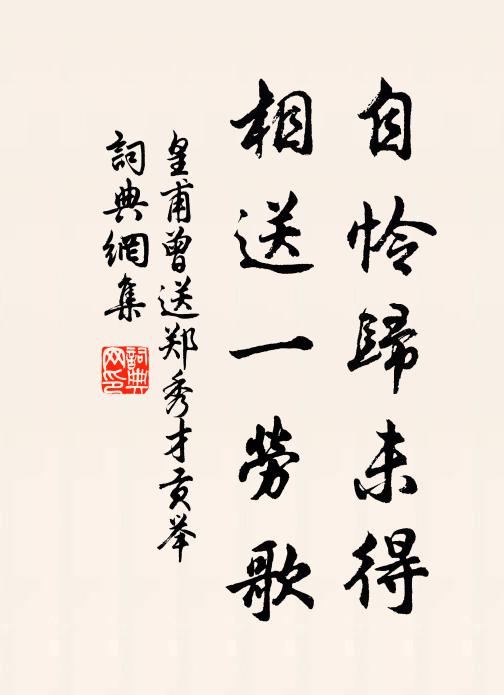 自怜歸未得
相送一勞歌
皇甫曾送郑秀才贡举
詞典網集
詞典网印